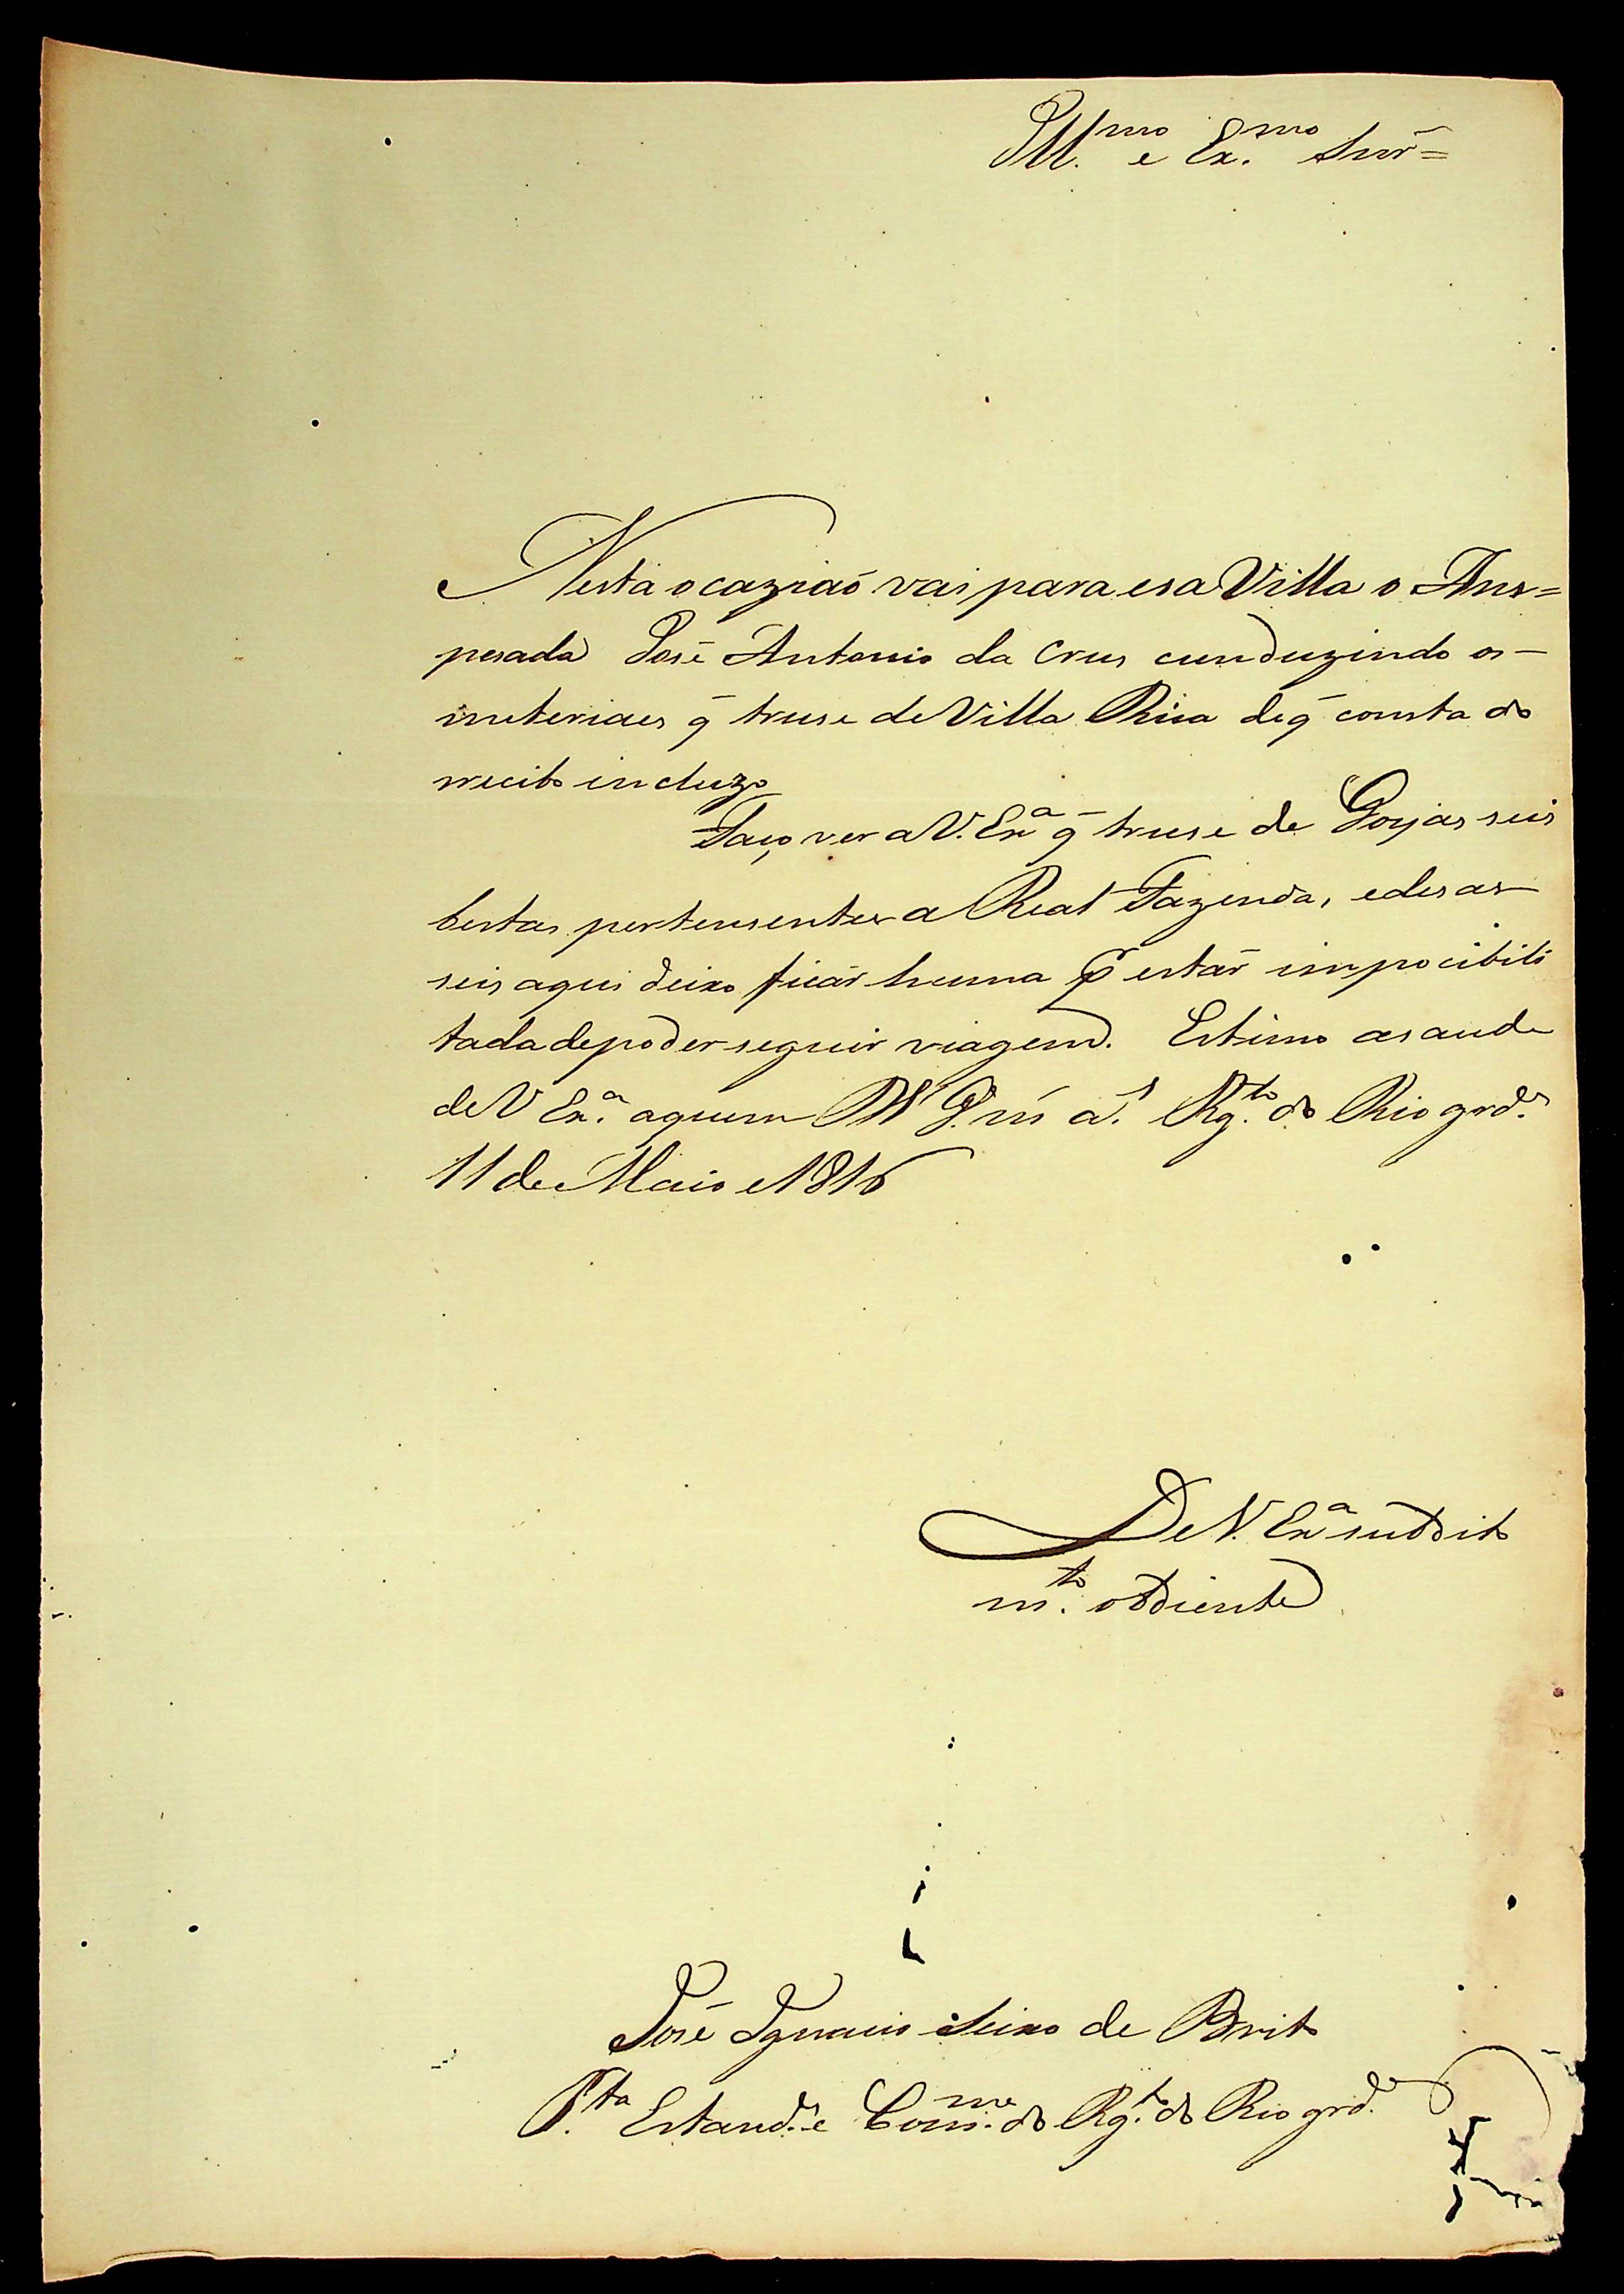 Ill.mo e Ex.mo Snr=
Nesta ocaziaõ vai para esa Villa o Ans=
pesada José Antonio da Crus cunduzindo os
meteriaes q̃ truse de Villa Rica de q̃ consta do
recibo incluzo
Faço ver a V. Exa q̃ truse de Goyas seis
bestas pertensentes a Real Fazenda, e desas
seis aqui deixo ficár huma pr estár impocibili
tada de poder seguir viagem. Estimo a saude
de V Ex.a a quem D.s G.e m.s a.s Rg.to do Rio grd.e
11 de Maio e 1816
De V. Exa suddito
m.to obdiente
José Ignacio Seixo de Brito
P.ta Estand.e Com.me do Rg.to do Rio grd.e